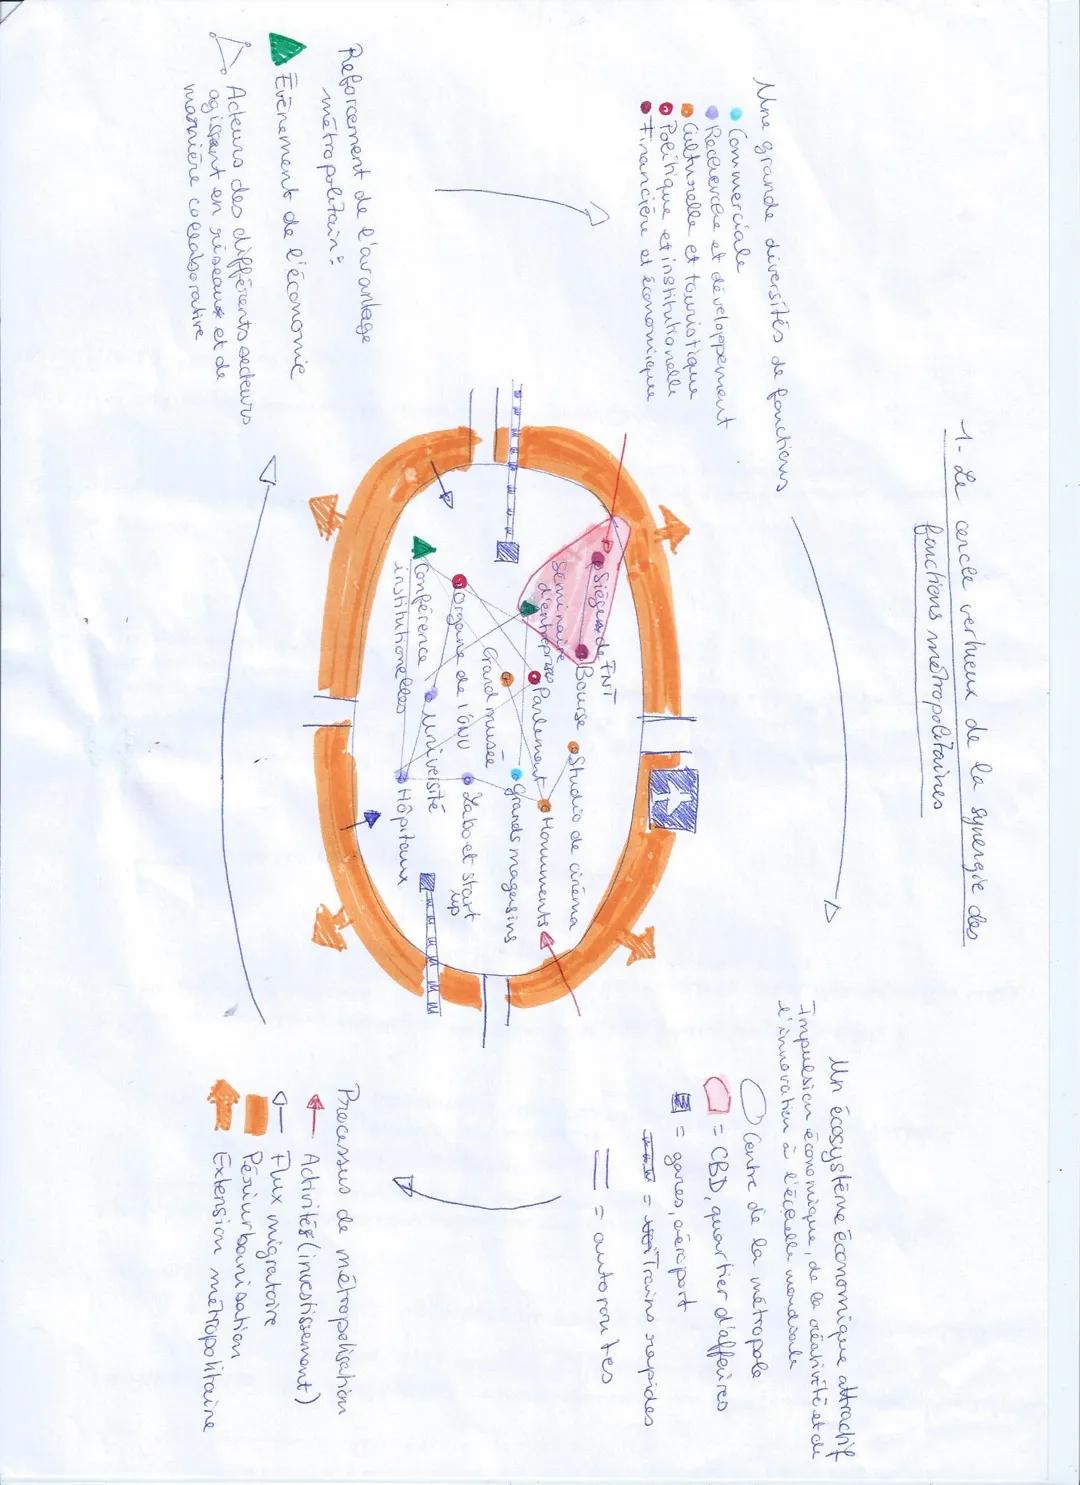 1- Le cercle vertueux de la synergie des
fonctions métropolitaines
Une grande diversités de fonctions
Commerciale
Recherche et développement
Culturelle et touristique
Politique et institutionelle
Financière et économique
Un écosystème économique attractif
Impulsion économique, de la créativité et de
l'innovation à l'échelle mondiale
Centre de la métropole
= CBD, quartier d'affaires
= gares, aéroport
= Trains rapides
= autoroutes
Siège de FNT
Bourse
Séminaire
d'entreprises
Studio de cinéma
Parlement
Monuments
Grand musée
Grands magasins
Organe de l'ONU
Labo et start
up
Université
Conférence
institutionelles
Hôpitaux
Reforcement de l'avantage
métropolitain:
Évènement de l'économie
Acteurs des différents secteurs
agissant en réseaux et de
manière collaborative
Processus de métropolisation
Activités (investissement)
Flux migratoire
Périurbanisation
Extension métropolitaine